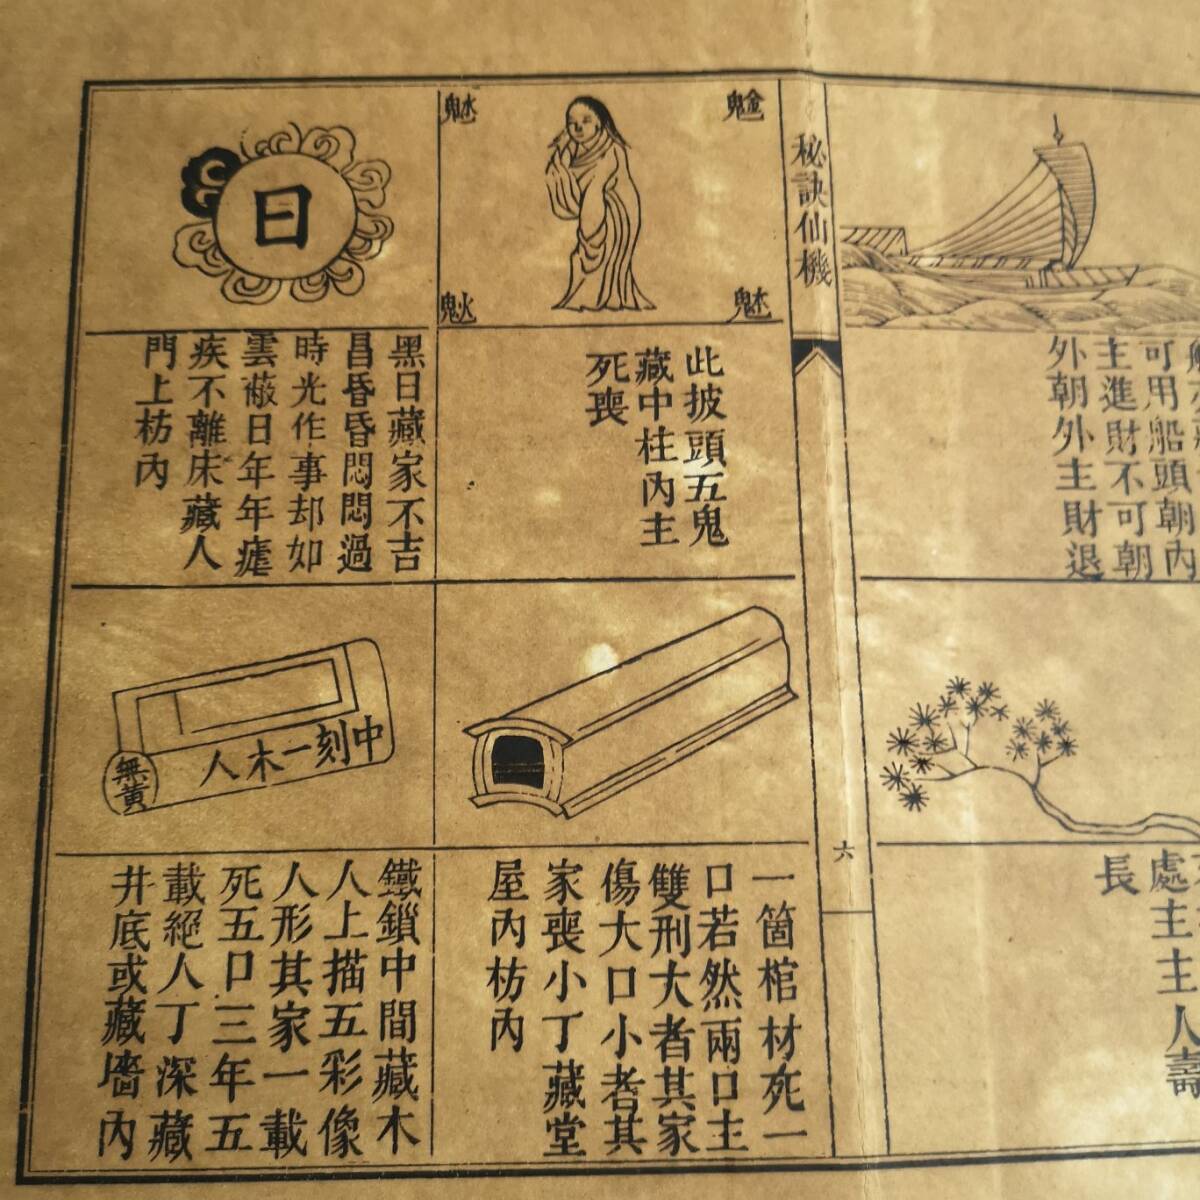 可用船頭朝內
主進財不可朝
外朝外主財退
處主主人壽
長
秘訣仙機
六
此披頭五鬼
藏中柱內主
死喪
一箇棺材死一
口若然兩口主
雙刑大者其家
傷大口小者其
家喪小丁藏堂
屋內枋內
日
黑日藏家不吉
昌昏昏悶悶過
時光作事却如
雲蔽日年年瘧
疾不離床藏人
門上枋內
中刻一木人
無黃
鐵鎖中間藏木
人上描五彩像
人形其家一載
死五口三年五
載絕人丁深藏
井底或藏墻內